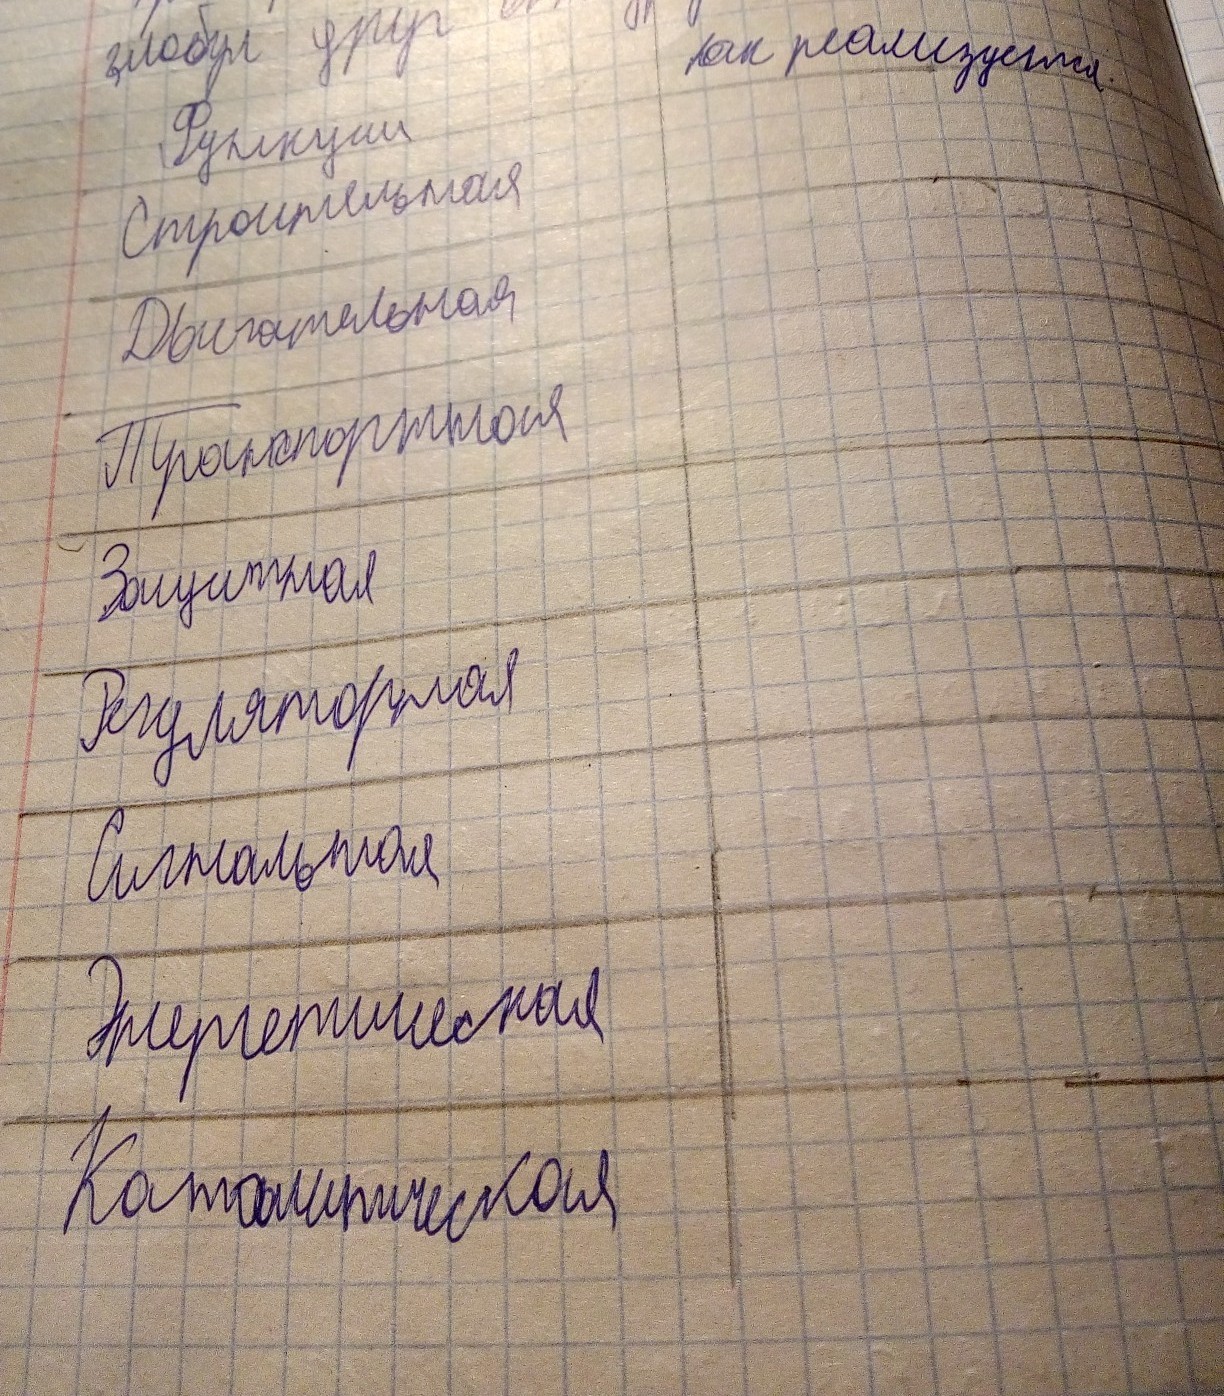 глобул друг
как реализуется.
Функции
Строительная
Двигательная
Транспортная
Защитная
Регуляторная
Сигнальная
Энергетическая
Каталитическая